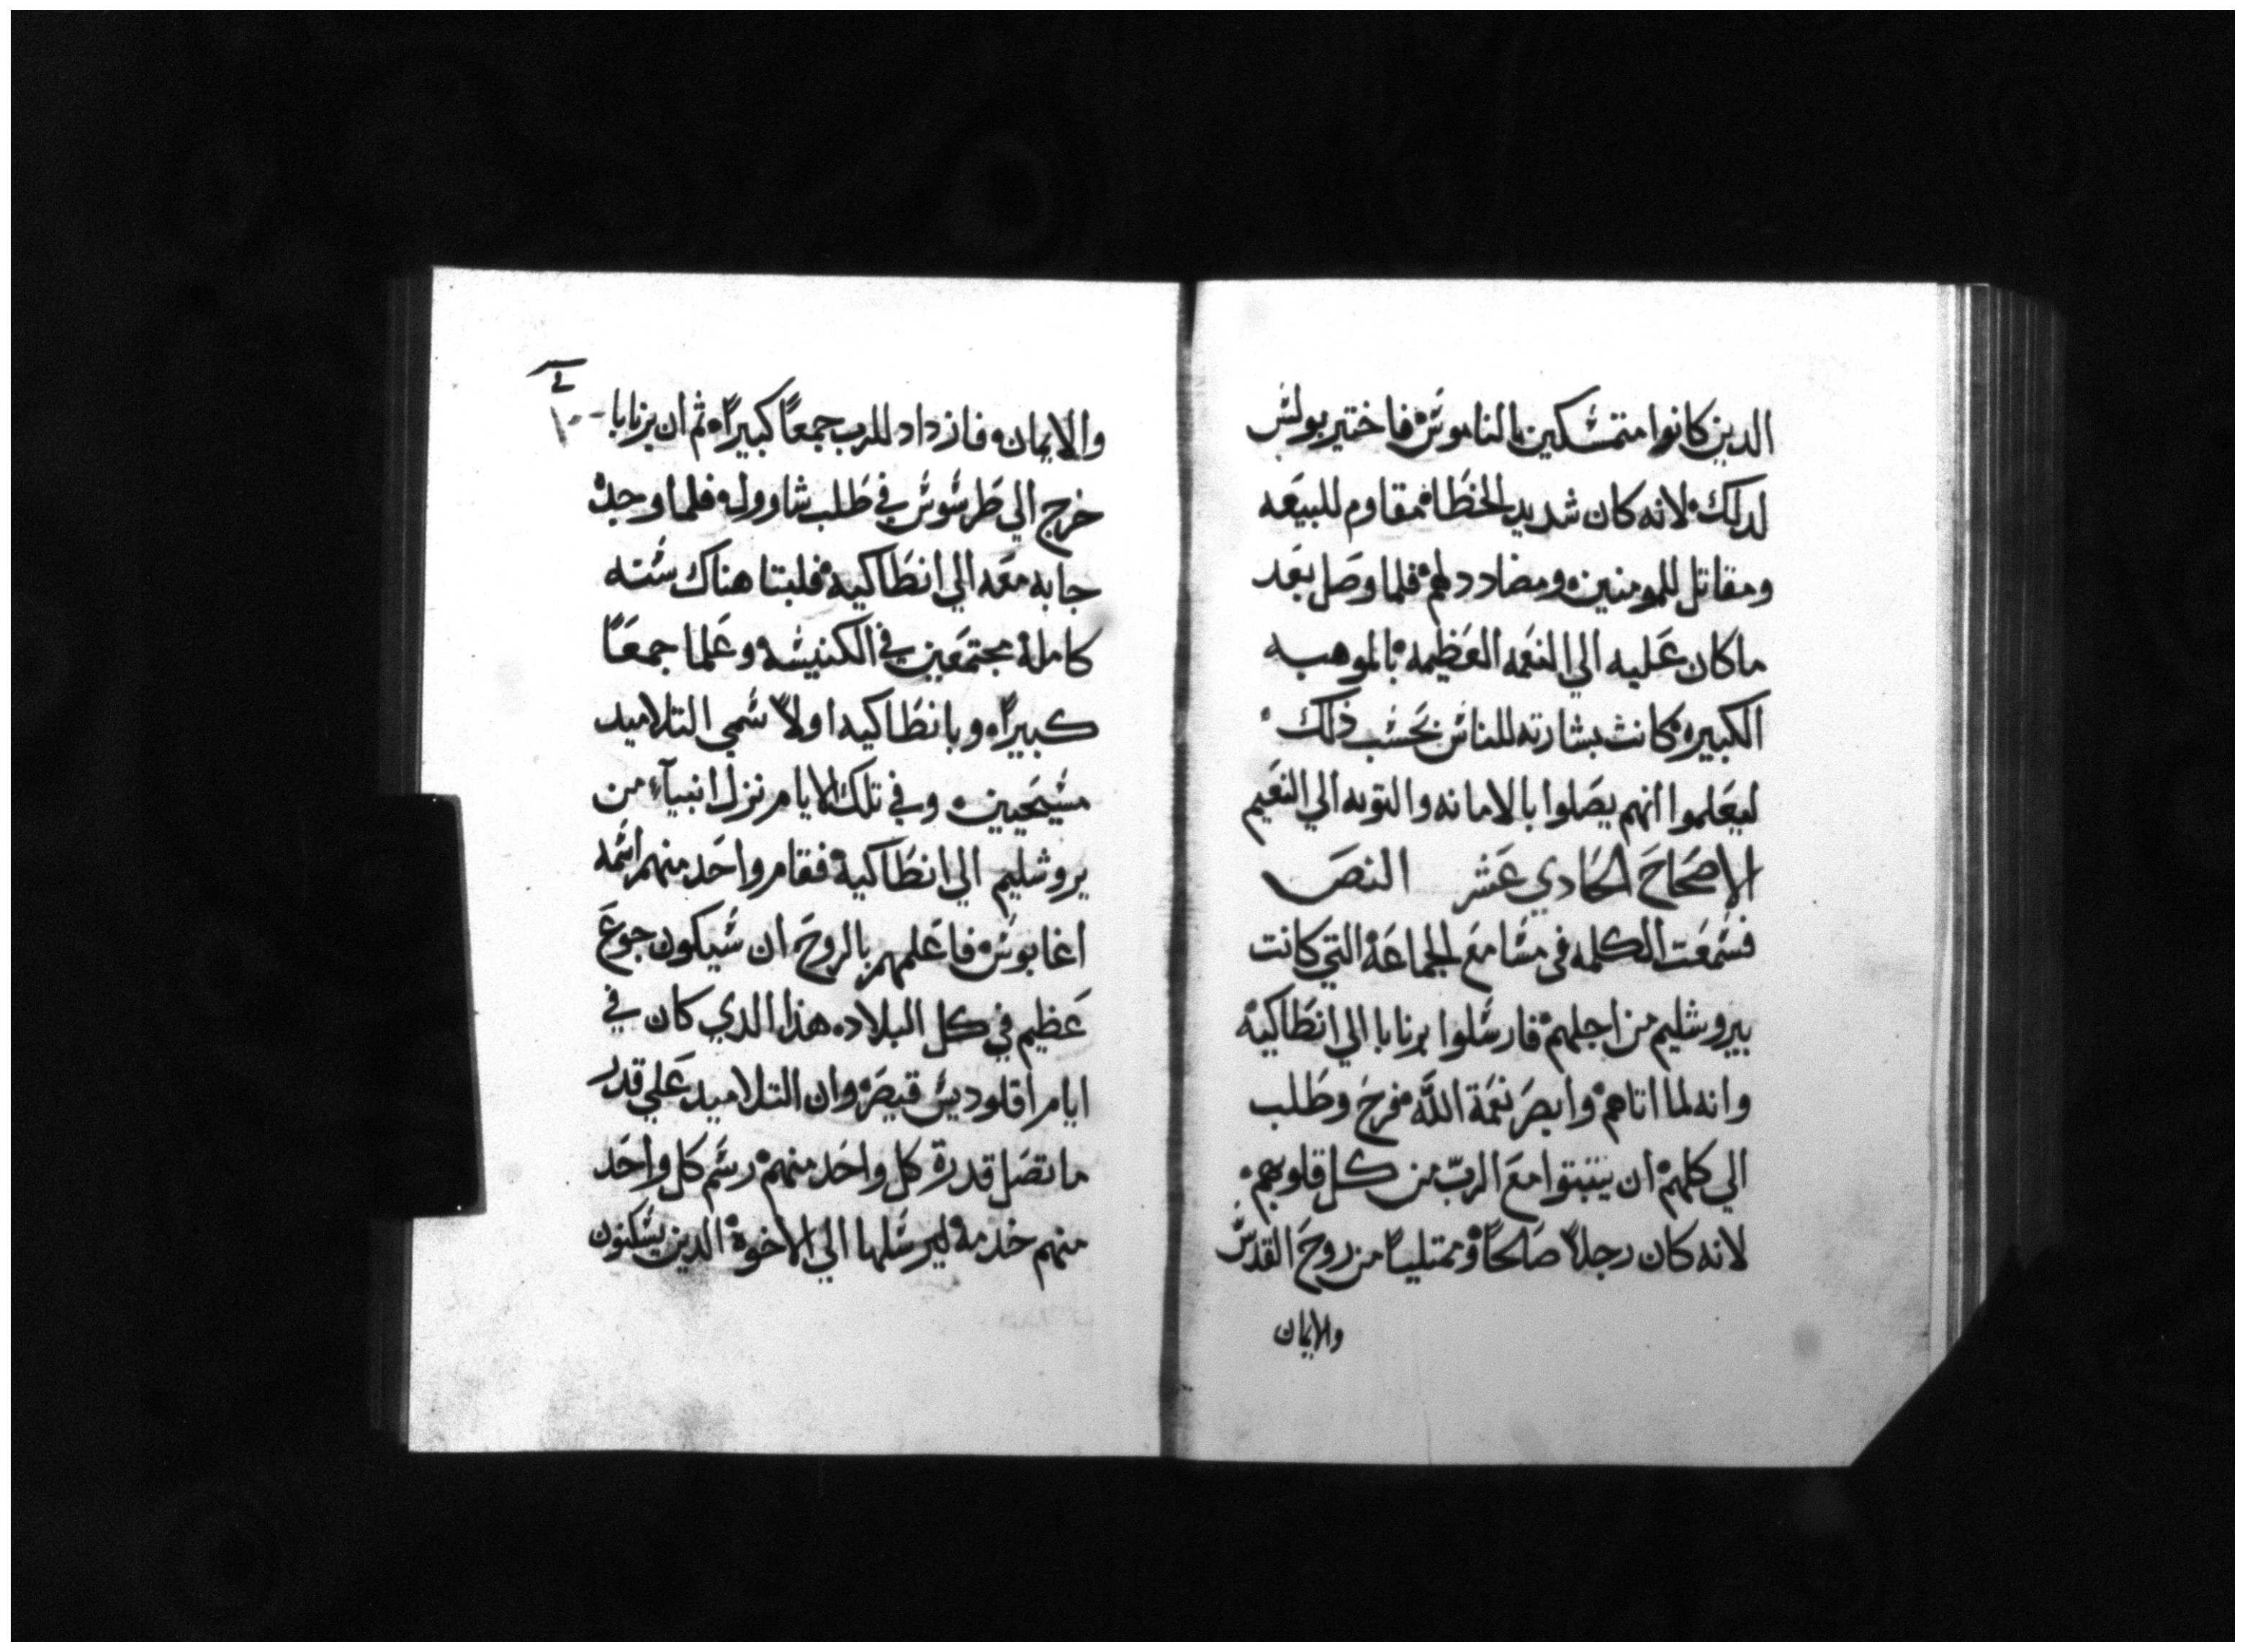 الدين كانوا متمسكين بالناموس فاختير بولس
لدلك لانه كان شديد الخطاء مقاوم للبيعه
ومقاتل للمومنين ومضادد لهم فلما وصل بعد
ما كان عليه الي النعمه العظيمه بالموهبه
الكبيره كانت بشارته للناس بحسب ذلك
ليعلموا انهم يصلوا بالامانه والتوبه الي النعيم
الاصحاح الحادي عشر النص
فسمعت الكلمه في مسامع الجماعة التي كانت
بيروشليم من اجلهم فارسلوا برنابا الي انطاكيه
وانه لما اتاهم وابصر نعمة اللّه فرح وطلب
الي كلهم ان يتبتوا مع الربّ من كل قلوبهم
لانه كان رجلاً صالحاً وممتلياً من روح القدس
والايمان
والايمان فازداد للرب جمعاً كبيراً ثم ان برنابا
خرج الي طرسوس في طلب شاوول فلما وجده
جابه معه الي انطاكيه فلبتا هناك سنه
كاملة مجتمعين في الكنيسه وعلما جمعاً
كبيراً وبانطاكيه اولاً سمي التلاميد
مسيحيين وفي تلك الايام نزل انبيآء من
يروشليم الي انطاكية فقام واحد منهم اسمه
اغابوس فاعلمهم بالروح ان سيكون جوع
عظيم في كل البلاد هذا الدي كان في
ايام اقلوديس قيصر وان التلاميد علي قدر
ما تصل قدرة كل واحد منهم رسم كل واحد
منهم خدمة ليرسلها الي الاخوة الدين يسكنون